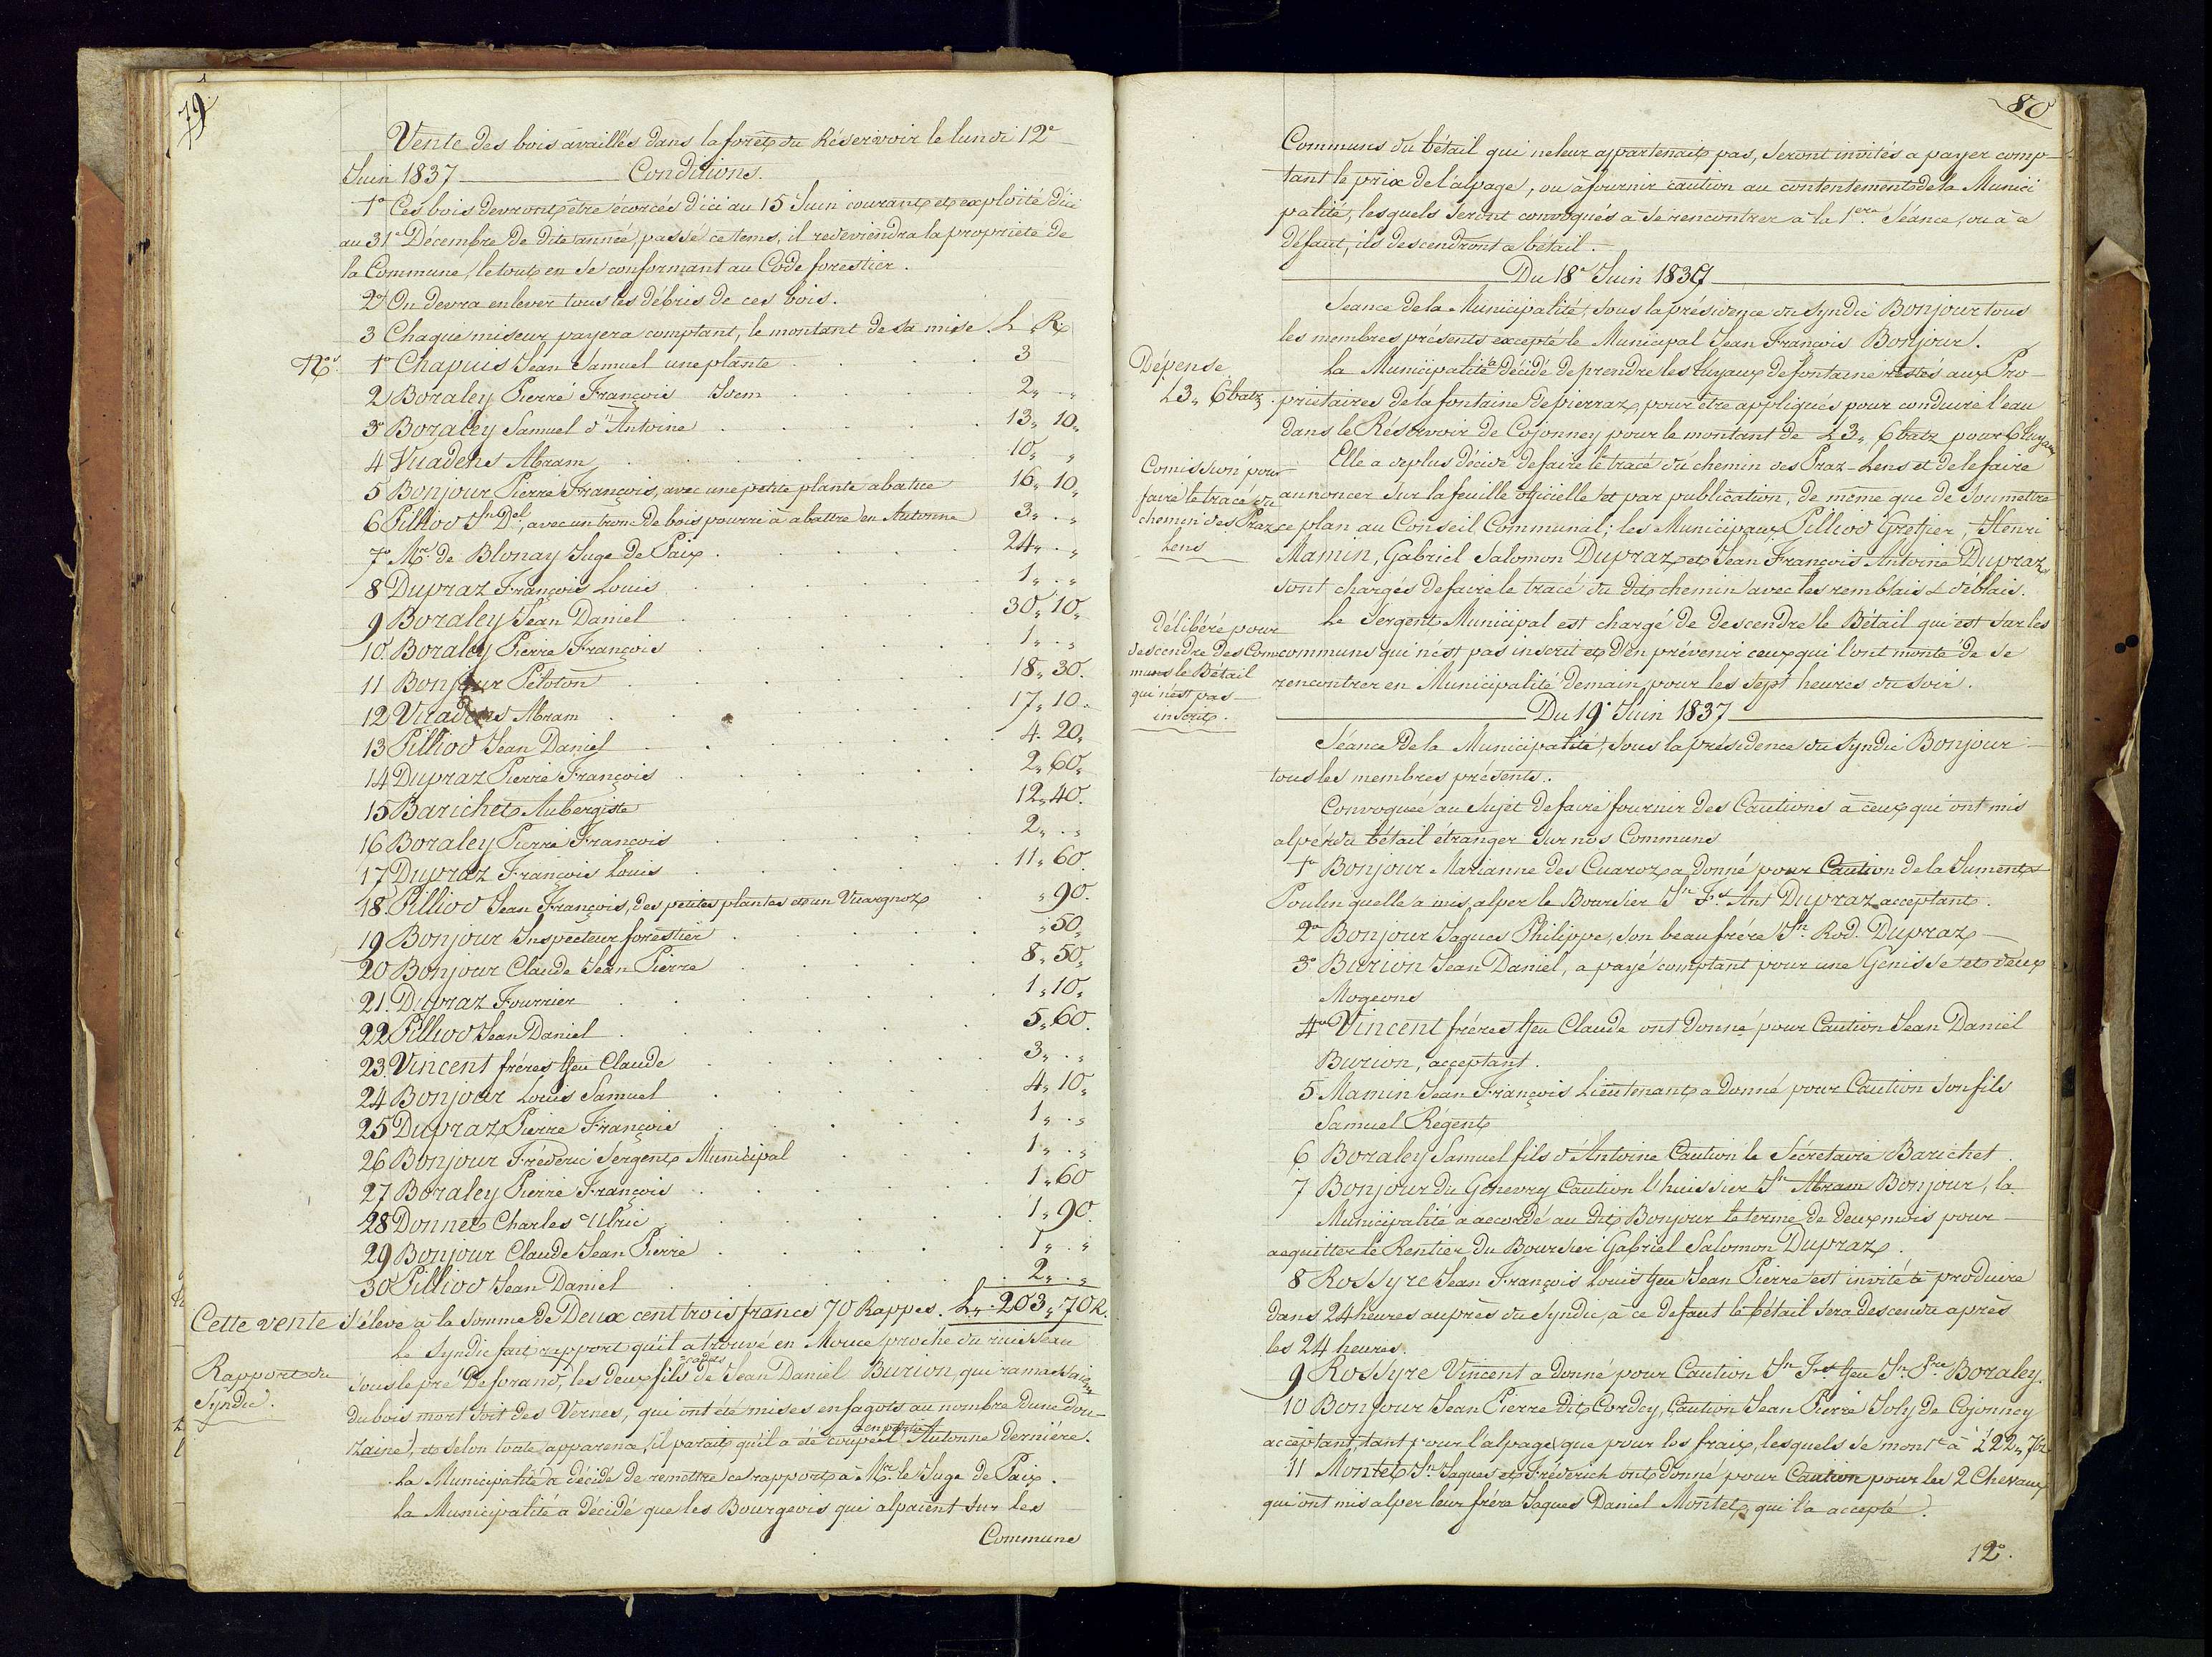 79
Vente des bois availlés dans la forêt du Réservoir le lundi 12e
Juin 1837 Conditions.
1o Ces bois devront être écorcés d'ici au 15 Juin courant et exploité d'ici
au 31e Décembre de dite année, passé ce tems, il redeviendra la propriété de
la Commune, le tout en se conformant au Code forestier.
2o On devra enlever tous les débris de ces bois.
3 Chaque miseur payera comptant, le montant de sa mise. L R
Nos 1o Chapuis Jean Samuel une plante 3
2 Boraley Pierre François Idem 2„ . „
3o Boraley Samuel d'Antoine 13„ 10„
4 Vuadens Abram 10„ „
5 Bonjour Pierre François, avec une petite plante abattue 16„ 10„
6 Pilliod Jn Del, avec un tronc de bois pourri à abattre en Automne 3„ . „
7o Mr de Blonay Juge de Paix 24„ . „
8 Dupraz François Louis 1„ . „
9 Boraley Jean Daniel 30„ 10„
10 Boraley Pierre François 1„ . „
11 Bonjour Péloton 18„ 30.
12 Vuadens Abram 17„ 10„
13 Pilliod Jean Daniel 4. 20„
14 Dupraz Pierre François 2„ 60„
15 Barichet Aubergiste 12„ 40.
16 Boraley Pierre François 2„ . „
17 Dupraz François Louis 11„ 60.
18. Pilliod Jean François, des petites plantes et un Vuargnoz „ 90.
19 Bonjour Inspecteur forestier „ 50„
20 Bonjour Claude Jean Pierre 8„ 50„
21. Dupraz Fourrier 1„ 10„
22 Pilliod Jean Daniel 5„ 60.
23. Vincent frères feu Claude 3„ . „
24 Bonjour Louis Samuel 4„ 10„
25 Dupraz Pierre François 1„ . „
26 Bonjour Fréderic Sergent Municipal 1„ . „
27 Boraley Pierre François 1„ 60
28 Donnet Charles Ulric 1„ 90.
29 Bonjour Claude Jean Pierre 1„ . „
30 Pilliod Jean Daniel 2„ . „
Cette vente s'éleve à la somme de Deux cent trois francs 70 Rappes. L„ 203„ 70 R.
Le Syndic fait rapport qu'il a trouvé en Mouce proche du ruisseau
Rapport du
Syndic.
sous le pré Deforand, les deux fils cadets de Jean Daniel Burion, qui ramassaient
du bois mort soit des Vernes, qui ont été mises en fagots au nombre d'une dou-
zaine, et selon toute apparence, il parait qu'il a été coupé en partie l'Automne dernière.
La Municipalité a décidé de remettre ce rapport à Mr le Juge de Paix.
La Municipalité a décidé que les Bourgeois qui alpaient sur les
Commune
80
Communs du bétail qui ne leur appartenait pas, seront invités a payer comp-
tant le prix de l'alpage, ou à fournir caution au contentement de la Munici
palité, lesquels seront convoqués à se rencontrer à la 1ere Séance, ou à a
défaut, ils descendront ce bétail.
Du 18e Juin 1837
Séance de la Municipalité, sous la présidence du Syndic Bonjour tous
les membres présents excepté le Municipal Jean François Bonjour.
Dépense
L3„ 6 batz.
La Municipalité a décidé de prendre les tuyaux de fontaine restés aux Pro-
priétaires de la fontaine de pierraz, pour être appliqués pour conduire l'eau
dans le Réservoir de Cojonney pour le montant de L 3„ 6 batz pour 6 tuyaux
Comission pour
faire le tracé du
chemin des Praz
Lens
Elle a de plus décidé de faire le tracé du chemin des Praz-Lens et de le faire
annoncer sur la feuille officielle et par publication, de même que de soumettre
ce plan au Conseil Communal; les Municipaux Pilliod Greffier, Henri
Mamin, Gabriel Salomon Dupraz et Jean François Antoine Dupraz
sont chargés de faire le tracé du dit chemin avec les remblais & déblais.
Délibéré pour
descendre des Com
muns le Bétail
qui n'est pas
inscrit.
Le Sergent Municipal est chargé de descendre le Bétail qui est sur les
communs qui n'est pas inscrit et d'en prévenir ceux qui l'ont monté de se
rencontrer en Municipalité demain pour les sept heures du soir.
Du 19e Juin 1837
Séance de la Municipalité, sous la présidence du Syndic Bonjour
tous les membres présents.
Convoquée au sujet de faire fournir des Cautions à ceux qui ont mis
alper du bétail étranger sur nos Communs
1o Bonjour Marianne des Cuaroz a donné pour Caution de la Jument &
Poulin quelle a mis alper le Boursier Jn Fs Ant Dupraz acceptant.
2o Bonjour Jaques Philippe, son beau frère Jn Rod. Dupraz
3o Burion Jean Daniel, a payé comptant pour une Genisse et deux
Mogeons
4o Vincent frères feu Claude ont donné pour Caution Jean Daniel
Burion, acceptant.
5 Mamin Jean François Lieutenant a donné pour Caution son fils
Samuel Régent
6 Boraley Samuel fils d'Antoine Caution le Sécretaire Barichet.
7 Bonjour du Genevrey Caution l'huissier Jn Abram Bonjour, la
Municipalité a accordé au dit Bonjour le terme de deux mois pour
acquitter le Rentier du Boursier Gabriel Salomon Dupraz.
8 Rossyre Jean François Louis feu Jean Pierre est invité à produire
dans 24 heures auprès du Syndic, à ce defaut le bétail sera descendu après
les 24 heures.
9 Rossyre Vincent a donné pour Caution Jn Fs feu Jn Pre Boraley.
10 Bonjour Jean Pierre dit Cordey, Caution Jean Pierre Joly de Cojonney
acceptant, tant pour l'alpage que pour les fraix, lesquels se montt à L 22„ 7 bz
11 Montet Jn Jaques et Fréderich ont donné pour Caution pour les 2 Chevaux
qui ont mis alper leur frère Jaques Daniel Montet, qui l'a accepté.
12o.